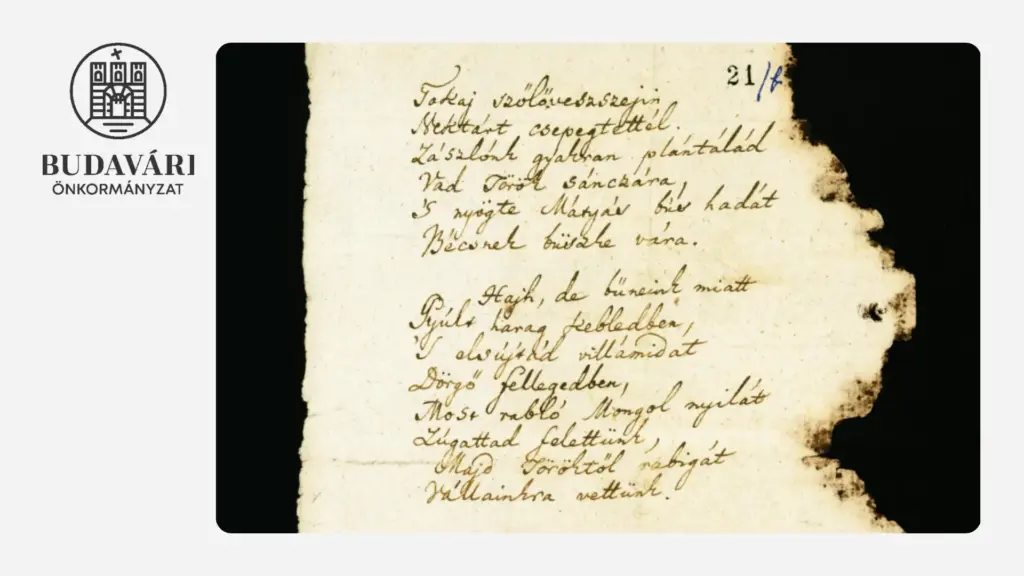 BUDAVÁRI
ÖNKORMÁNYZAT
21/b
Tokaj szőlővesszejin
Nektárt csepegtettél.
Zászlónk gyakran plántálád
Vad Török sánczára,
'S nyögte Mátyás bús hadát
Bécsnek büszke vára.
Hajh, de bűneink miatt
Gyúlt harag kebledben,
'S elsújtád villámidat
Dörgő fellegedben,
Most rabló Mongol nyilát
Zúgattad felettünk,
Majd Töröktől rabigát
Vállainkra vettünk.